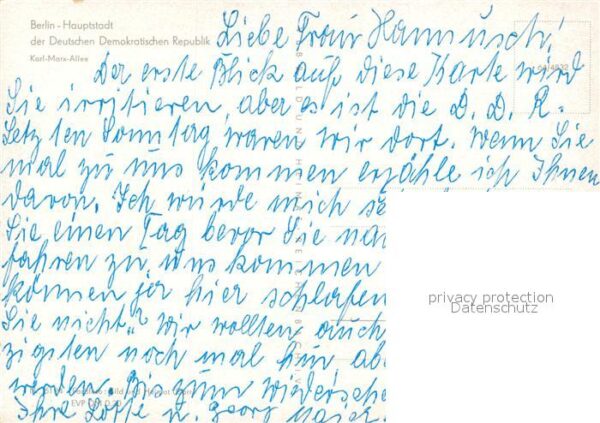 Berlin - Hauptstadt
der Deutschen Demokratischen Republik
Karl-Marx-Allee
Liebe Frau Hannusch!
Der erste Blick auf diese Karte wird
Sie irritieren, aber es ist die D. D. R.
Letzten Sonntag waren wir dort. Wenn Sie
mal zu uns kommen erzähle ich Ihnen
davon. Ich würde mich
Sie einen Tag bevor Sie
fahren zu uns kommen
können ja hier schlafen
Sie nicht? Wir wollten auch
zigsten noch mal hin
werden. Bis zum
Ihre Lotte u. Georg
EVP
privacy protection
Datenschutz